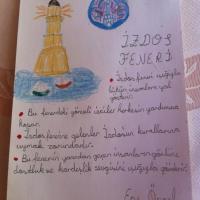 İZDOS
FENERİ
• İzdos feneri ışığıyla
bütün insanlara yol
gösterir.
• Bu fenerdeki görevli izciler herkesin yardımına
koşar.
• İzdos fenerine gelenler İzdosun kurallarına
uymak zorundadır.
• Bu fenerin yanından geçen insanların gönlüne
dostluk ve kardeşlik sevgisini ışığıyla gönderir.